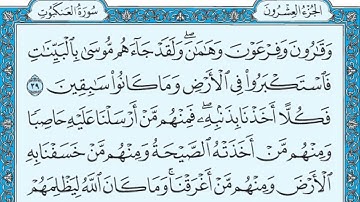 سُورَةُ العَنكَبُوتِ
الجُزْءُ العِشْرُونَ
وَقَٰرُونَ وَفِرْعَوْنَ وَهَٰمَٰنَۖ وَلَقَدْ جَآءَهُم مُّوسَىٰ بِٱلْبَيِّنَٰتِ
فَٱسْتَكْبَرُوا۟ فِى ٱلْأَرْضِ وَمَا كَانُوا۟ سَٰبِقِينَ ٣٩
فَكُلًّا أَخَذْنَا بِذَنۢبِهِۦۖ فَمِنْهُم مَّنْ أَرْسَلْنَا عَلَيْهِ حَاصِبًا
وَمِنْهُم مَّنْ أَخَذَتْهُ ٱلصَّيْحَةُ وَمِنْهُم مَّنْ خَسَفْنَا بِهِ
ٱلْأَرْضَ وَمِنْهُم مَّنْ أَغْرَقْنَاۚ وَمَا كَانَ ٱللَّهُ لِيَظْلِمَهُمْ